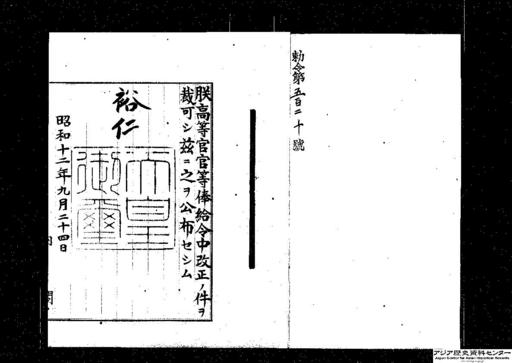 勅令第五百二十號
朕高等官官等俸給令中改正ノ件ヲ
裁可シ茲ニ之ヲ公布セシム
裕仁
天皇御璽
昭和十二年九月二十四日
アジア歴史資料センター
Japan Center for Asian Historical Records